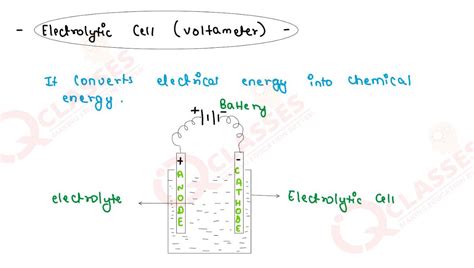 - Electrolytic Cell (voltameter) -
It converts electrical energy into chemical
energy.
+ - Battery
+ -
ANODE
CATHODE
electrolyte
Electrolytic Cell
CLASSES
CLASSES
CLASSES